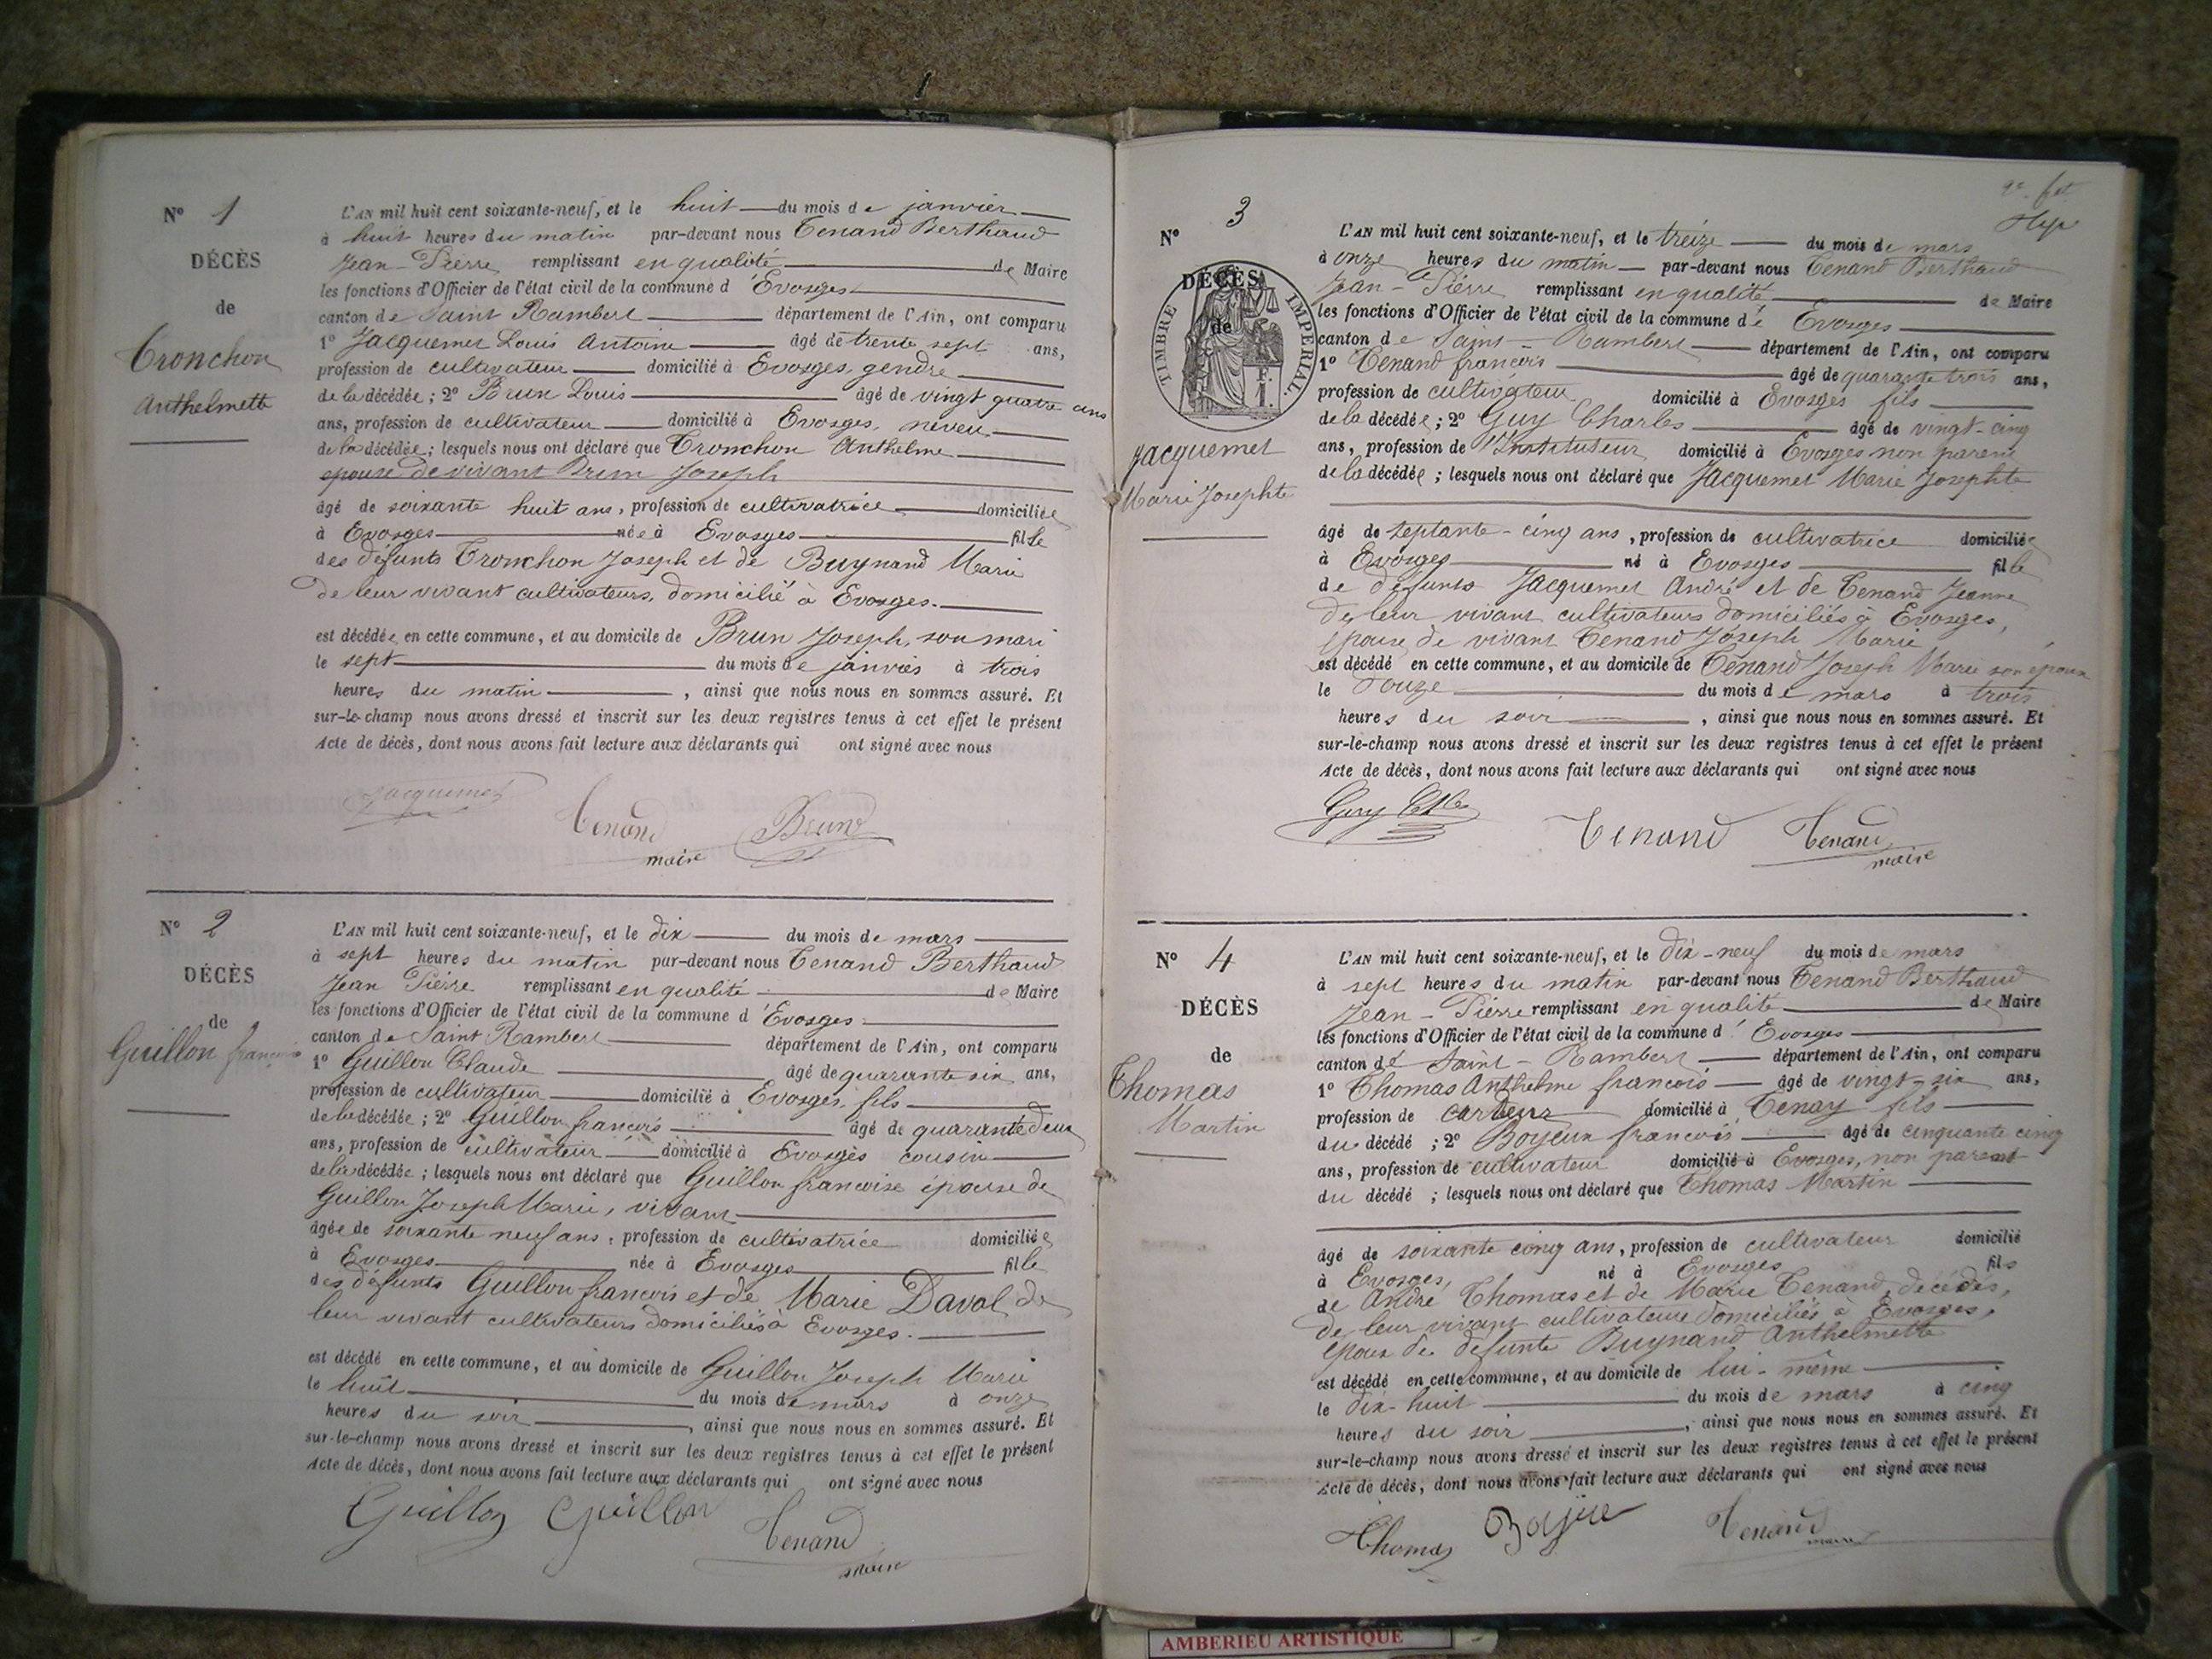 Nº 1
DÉCÈS
de
Tronchon
Anthelmette
L'AN mil huit cent soixante-neuf, et le huit du mois de janvier
à huit heures du matin par-devant nous Tenand Berthaud
Jean-Pierre remplissant en qualité de Maire
les fonctions d'Officier de l'état civil de la commune d'Evosges
canton de Saint Rambert département de l'Ain, ont comparu
1º Jacquemet Louis Antoine âgé de trente sept ans,
profession de cultivateur domicilié à Evosges, gendre
de la décédée; 2º Brun Louis âgé de vingt quatre ans
ans, profession de cultivateur domicilié à Evosges, neveu
de la décédée; lesquels nous ont déclaré que Tronchon Anthelme
epouse de vivant Brun Joseph
âgé de soixante huit ans, profession de cultivatrice domiciliée
à Evosges née à Evosges fille
des défunts Tronchon Joseph et de Buynand Marie
de leur vivant cultivateurs, domicilié à Evosges.
est décédée en cette commune, et au domicile de Brun Joseph, son mari
le sept du mois de janvier à trois
heures du matin, ainsi que nous nous en sommes assuré. Et
sur-le-champ nous avons dressé et inscrit sur les deux registres tenus à cet effet le présent
Acte de décès, dont nous avons fait lecture aux déclarants qui ont signé avec nous
Jacquemet
Tenand Brund
maire
Nº 2
DÉCÈS
de
Guillon francoise
L'AN mil huit cent soixante-neuf, et le dix du mois de mars
à sept heures du matin par-devant nous Tenand Berthaud
Jean Pierre remplissant en qualité de Maire
les fonctions d'Officier de l'état civil de la commune d'Evosges
canton de Saint Rambert département de l'Ain, ont comparu
1º Guillon Claude âgé de quarante six ans,
profession de cultivateur domicilié à Evosges, fils
de la décédée; 2º Guillon francois âgé de quarante deux
ans, profession de cultivateur domicilié à Evosges cousin
de la décédée; lesquels nous ont déclaré que Guillon francoise épouse de
Guillon Joseph Marie, vivant
âgée de soixante neuf ans, profession de cultivatrice domiciliée
à Evosges née à Evosges fille
des défunts Guillon francois et de Marie Daval de
leur vivant cultivateurs domiciliés à Evosges.
est décédé en cette commune, et au domicile de Guillon Joseph Marie
le huit du mois de mars à onze
heures du soir, ainsi que nous nous en sommes assuré. Et
sur-le-champ nous avons dressé et inscrit sur les deux registres tenus à cet effet le présent
Acte de décès, dont nous avons fait lecture aux déclarants qui ont signé avec nous
Guillon Guillon Tenand
maire
Nº 3
DÉCÈS
de
TIMBRE IMPERIAL.
1 F.
Jacquemet
Marie Josephte
L'AN mil huit cent soixante-neuf, et le treize du mois de mars
à onze heures du matin par-devant nous Tenand Berthaud
Jean-Pierre remplissant en qualité de Maire
les fonctions d'Officier de l'état civil de la commune d'é Evosges
canton de Saint-Rambert département de l'Ain, ont comparu
1º Tenand francois âgé de quarante trois ans,
profession de cultivateur domicilié à Evosges fils
de la décédée; 2º Guy Charles âgé de vingt-cinq
ans, profession de l'Instituteur domicilié à Evosges non parent
de la décédée; lesquels nous ont déclaré que Jacquemet Marie Josephte
âgé de septante-cinq ans, profession de cultivatrice domiciliée
à Evosges né à Evosges fille
de défunts Jacquemet André et de Tenand Jeanne
de leur vivant cultivateurs domiciliés à Evosges,
épouse de vivant Tenand Joseph Marie
est décédé en cette commune, et au domicile de Tenand Joseph Marie son époux
le douze du mois de mars à trois
heures du soir, ainsi que nous nous en sommes assuré. Et
sur-le-champ nous avons dressé et inscrit sur les deux registres tenus à cet effet le présent
Acte de décès, dont nous avons fait lecture aux déclarants qui ont signé avec nous
Guy Chles
Tenand Tenand
maire
Nº 4
DÉCÈS
de
Thomas
Martin
L'AN mil huit cent soixante-neuf, et le dix-neuf du mois de mars
à sept heures du matin par-devant nous Tenand Berthaud
Jean-Pierre remplissant en qualité de Maire
les fonctions d'Officier de l'état civil de la commune d'Evosges
canton de Saint-Rambert département de l'Ain, ont comparu
1º Thomas Anthelme francois âgé de vingt-six ans,
profession de cardeur domicilié à Tenay fils
du décédé; 2º Boyeux francois âgé de cinquante cinq
ans, profession de cultivateur domicilié à Evosges, non parent
du décédé; lesquels nous ont déclaré que Thomas Martin
âgé de soixante cinq ans, profession de cultivateur domicilié
à Evosges, né à Evosges fils
de André Thomas et de Marie Tenand, décédés,
de leur vivant cultivateurs domiciliés à Evosges,
époux de défunte Buynand Anthelmette
est décédé en cette commune, et au domicile de lui-même
le dix-huit du mois de mars à cinq
heures du soir, ainsi que nous nous en sommes assuré. Et
sur-le-champ nous avons dressé et inscrit sur les deux registres tenus à cet effet le présent
Acte de décès, dont nous avons fait lecture aux déclarants qui ont signé avec nous
Thomas Tenand
maire
AMBERIEU ARTISTIQUE